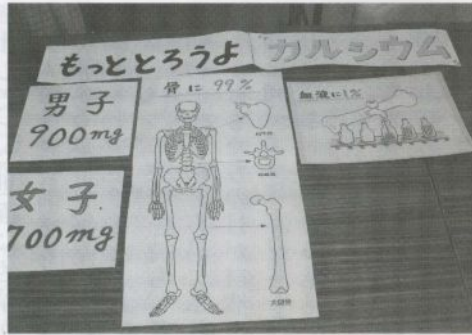 もっととろうよ "カルシウム"
男子
900mg
女子
700mg
骨に 99%
大腿骨
血液に1%